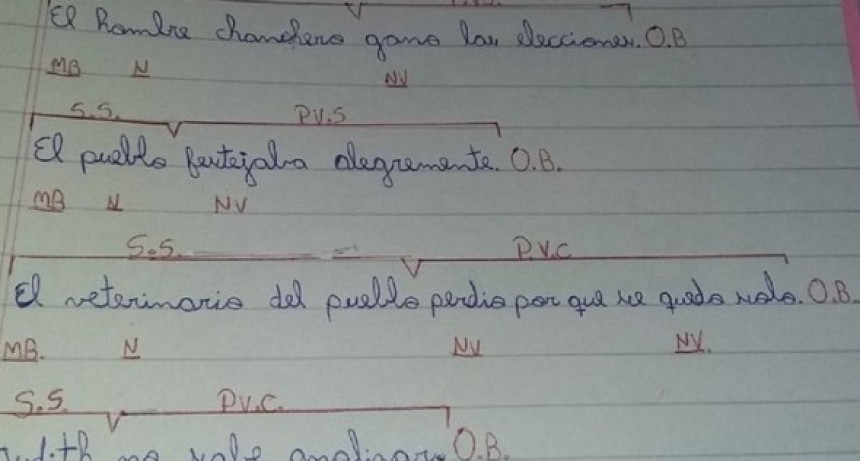 El hombre chanchero gano las elecciones. O.B
MB N NV
S.S. P.V.S
El pueblo festejaba alegremente. O.B.
MB N NV
S.S. P.V.C
El veterinario del pueblo perdio por que se quedo solo. O.B.
MB. N NV NV.
S.S. P.V.C.
no sale analizar. O.B.